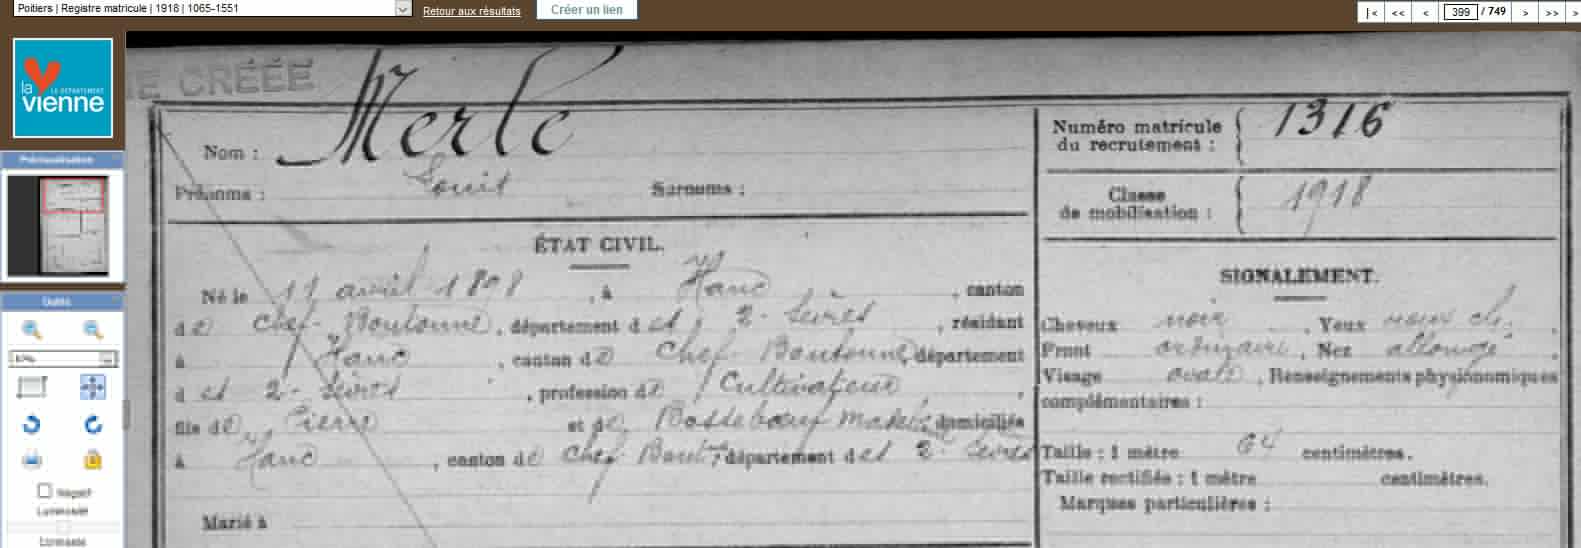 Poitiers | Registre matricule | 1918 | 1065-1551
Retour aux résultats
Créer un lien
|<
<<
<
399 / 749
>
>>
>
la vienne
LE DÉPARTEMENT
Prévisualisation
Outils
Négatif
Luminosité
Contraste
E CRÉÉE
Nom : Merle
Prénoms : Louis Surnoms :
Numéro matricule
du recrutement : 1316
Classe
de mobilisation : 1918
ÉTAT CIVIL.
Né le 11 avril 1898, à Hanc, canton
de Chef-Boutonne, département des 2-Sèvres, résidant
à Hanc, canton de Chef-Boutonne, département
des 2-Sèvres, profession de Cultivateur,
fils de Pierre et de domiciliés
à Hanc, canton de Chef Bout, département des 2-Sèvres
Marié à
SIGNALEMENT.
Cheveux noir, Yeux,
Front ordinaire, Nez allongé,
Visage ovale, Renseignements physionomiques
complémentaires :
Taille : 1 mètre 64 centimètres.
Taille rectifiée : 1 mètre centimètres.
Marques particulières :